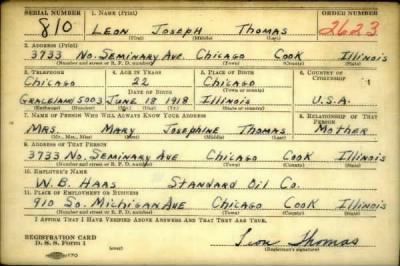 SERIAL NUMBER 1. NAME (Print) ORDER NUMBER
810 LEON JOSEPH THOMAS 2623
(First) (Middle) (Last)
2. ADDRESS (Print)
3733 No. SEMINARY AVE. CHICAGO COOK ILLINOIS
(Number and street or R. F. D. number) (Town) (County) (State)
3. TELEPHONE 4. AGE IN YEARS 5. PLACE OF BIRTH 6. COUNTRY OF CITIZENSHIP
CHICAGO 22 CHICAGO
DATE OF BIRTH (Town or county)
GRACELAND 5003 JUNE 18 1918 ILLINOIS U.S.A.
(Mo.) (Day) (Yr.) (State or country)
7. NAME OF PERSON WHO WILL ALWAYS KNOW YOUR ADDRESS 8. RELATIONSHIP OF THAT PERSON
MRS. MARY JOSEPHINE THOMAS MOTHER
(Mr., Mrs., Miss) (First) (Middle) (Last)
9. ADDRESS OF THAT PERSON
3733 No. SEMINARY AVE CHICAGO COOK ILLINOIS
(Number and street or R. F. D. number) (Town) (County) (State)
10. EMPLOYER'S NAME
W. B. HAAS STANDARD OIL CO.
11. PLACE OF EMPLOYMENT OR BUSINESS
910 SO. MICHIGAN AVE CHICAGO COOK ILLINOIS
(Number and street or R. F. D. number) (Town) (County) (State)
I AFFIRM THAT I HAVE VERIFIED ABOVE ANSWERS AND THAT THEY ARE TRUE.
REGISTRATION CARD
D. S. S. Form 1 Leon Thomas
(Registrant's signature)